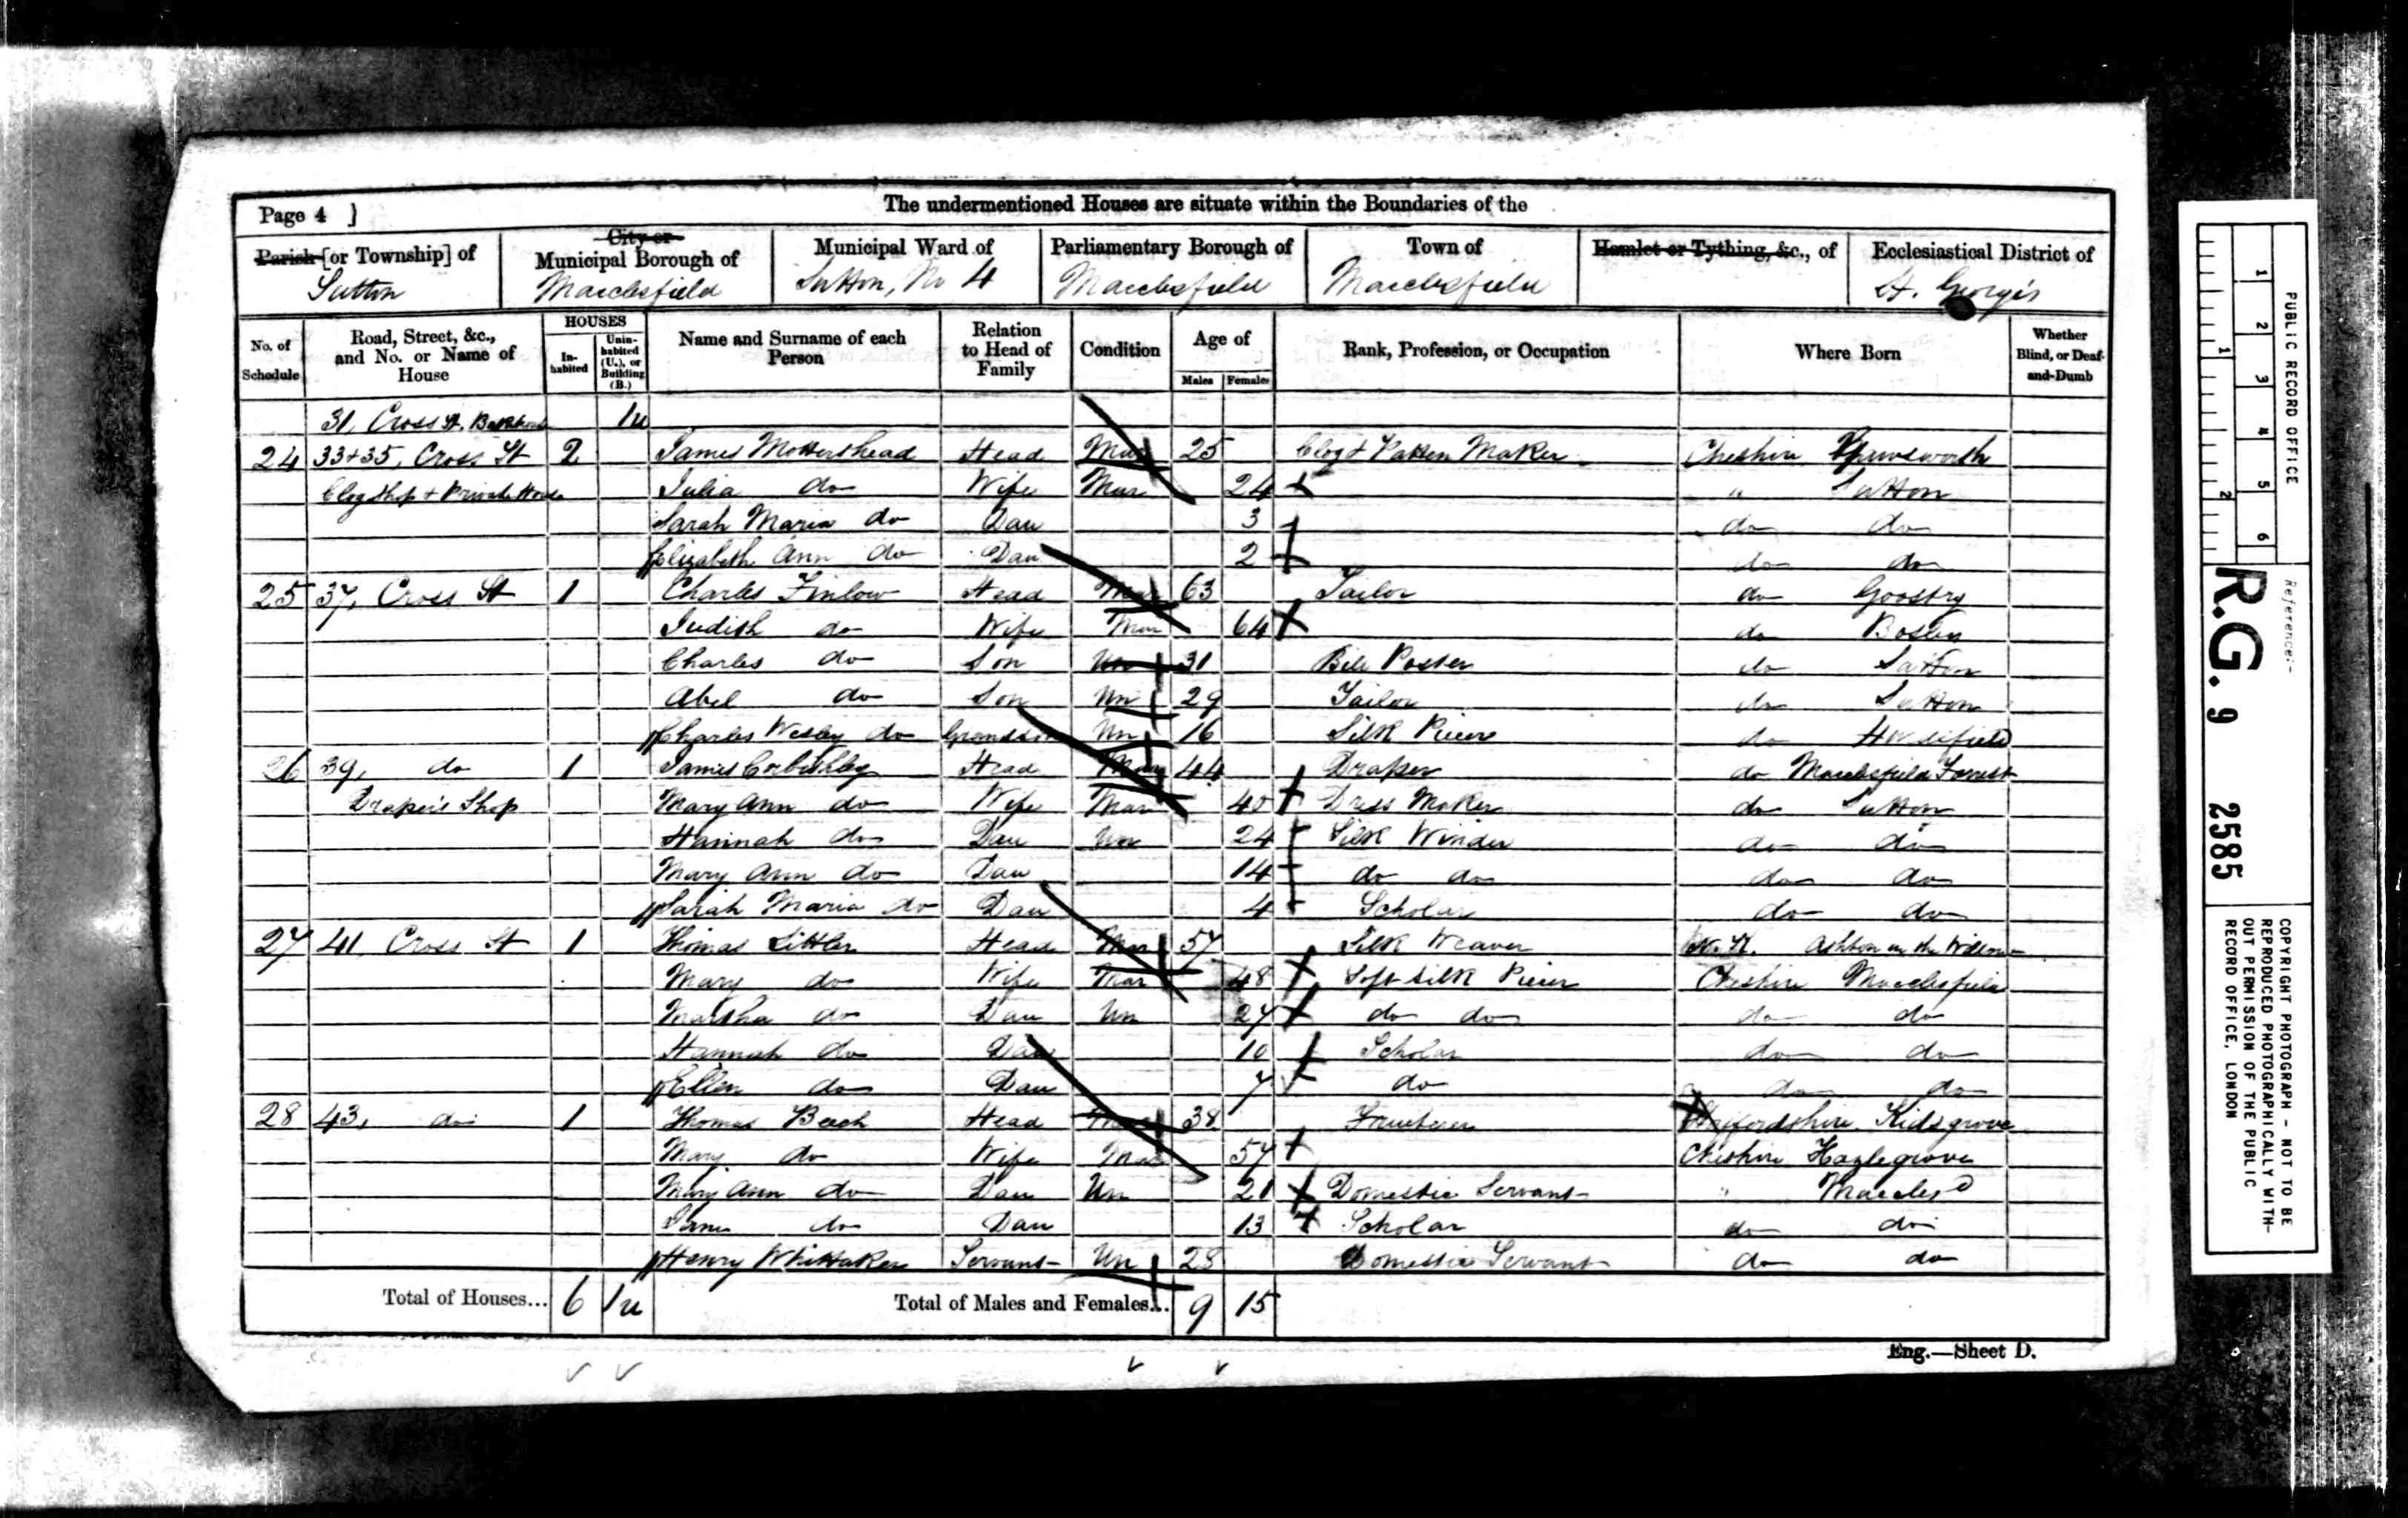 Page 4 ]
The undermentioned Houses are situate within the Boundaries of the
Parish [or Township] of
Sutton
City or
Municipal Borough of
Macclesfield
Municipal Ward of
Sutton, No 4
Parliamentary Borough of
Macclesfield
Town of
Macclesfield
Hamlet or Tything, &c., of
Ecclesiastical District of
St. George's
No. of Schedule
Road, Street, &c., and No. or Name of House
HOUSES
In-habited
Unin-habited (U.), or Building (B.)
Name and Surname of each Person
Relation to Head of Family
Condition
Age of
Males
Females
Rank, Profession, or Occupation
Where Born
Whether Blind, or Deaf-and-Dumb
31, Cross St, 1u
24 33+35, Cross St 2 James Mottershead Head Mar 25 Clog & Patten Maker Cheshire Gawsworth
Clog Shop + Private House Julia do Wife Mar 24 " Sutton
Sarah Maria do Dau 3 do do
Elizabeth Ann do Dau 2 do do
25 37, Cross St 1 Charles Finlow Head Mar 63 Tailor do Goostry
Judith do Wife Mar 64 do Bosley
Charles do Son Un 31 Bill Poster do Sutton
Abel do Son Un 29 Tailor do Sutton
Charles Wesley do Grandson Un 16 Silk Piecer do
26 39, do 1 James Corbishley Head Mar 44 Draper do Macclesfield Forrest
Draper's Shop Mary Ann do Wife Mar 40 Dress Maker do Sutton
Hannah do Dau Un 24 Silk Winder do do
Mary Ann do Dau 14 do do do do
Sarah Maria do Dau 4 Scholar do do
27 41, Cross St 1 Thomas Littler Head Mar 57 Silk Weaver Ashton in the
Mary do Wife Mar 48 Soft Silk Piecer Cheshire Macclesfield
Martha do Dau Un 27 do do do do
Hannah do Dau 10 Scholar do do
Ellen do Dau 7 do do do
28 43, do 1 Thomas Beech Head Mar 38 Fruiterer Staffordshire Kidsgrove
Mary do Wife Mar 57 Cheshire Hazlegrove
Mary Ann do Dau Un 21 Domestic Servant " Maccles d
Jane do Dau 13 Scholar do do
Henry Whittaker Servant Un 28 Domestic Servant do do
Total of Houses... 6 1u Total of Males and Females... 9 15
Eng.—Sheet D.
1 2 3 4 5 6
1 2
PUBLIC RECORD OFFICE
Reference:-
R.G. 9 2585
COPYRIGHT PHOTOGRAPH - NOT TO BE
REPRODUCED PHOTOGRAPHICALLY WITH-
OUT PERMISSION OF THE PUBLIC
RECORD OFFICE, LONDON